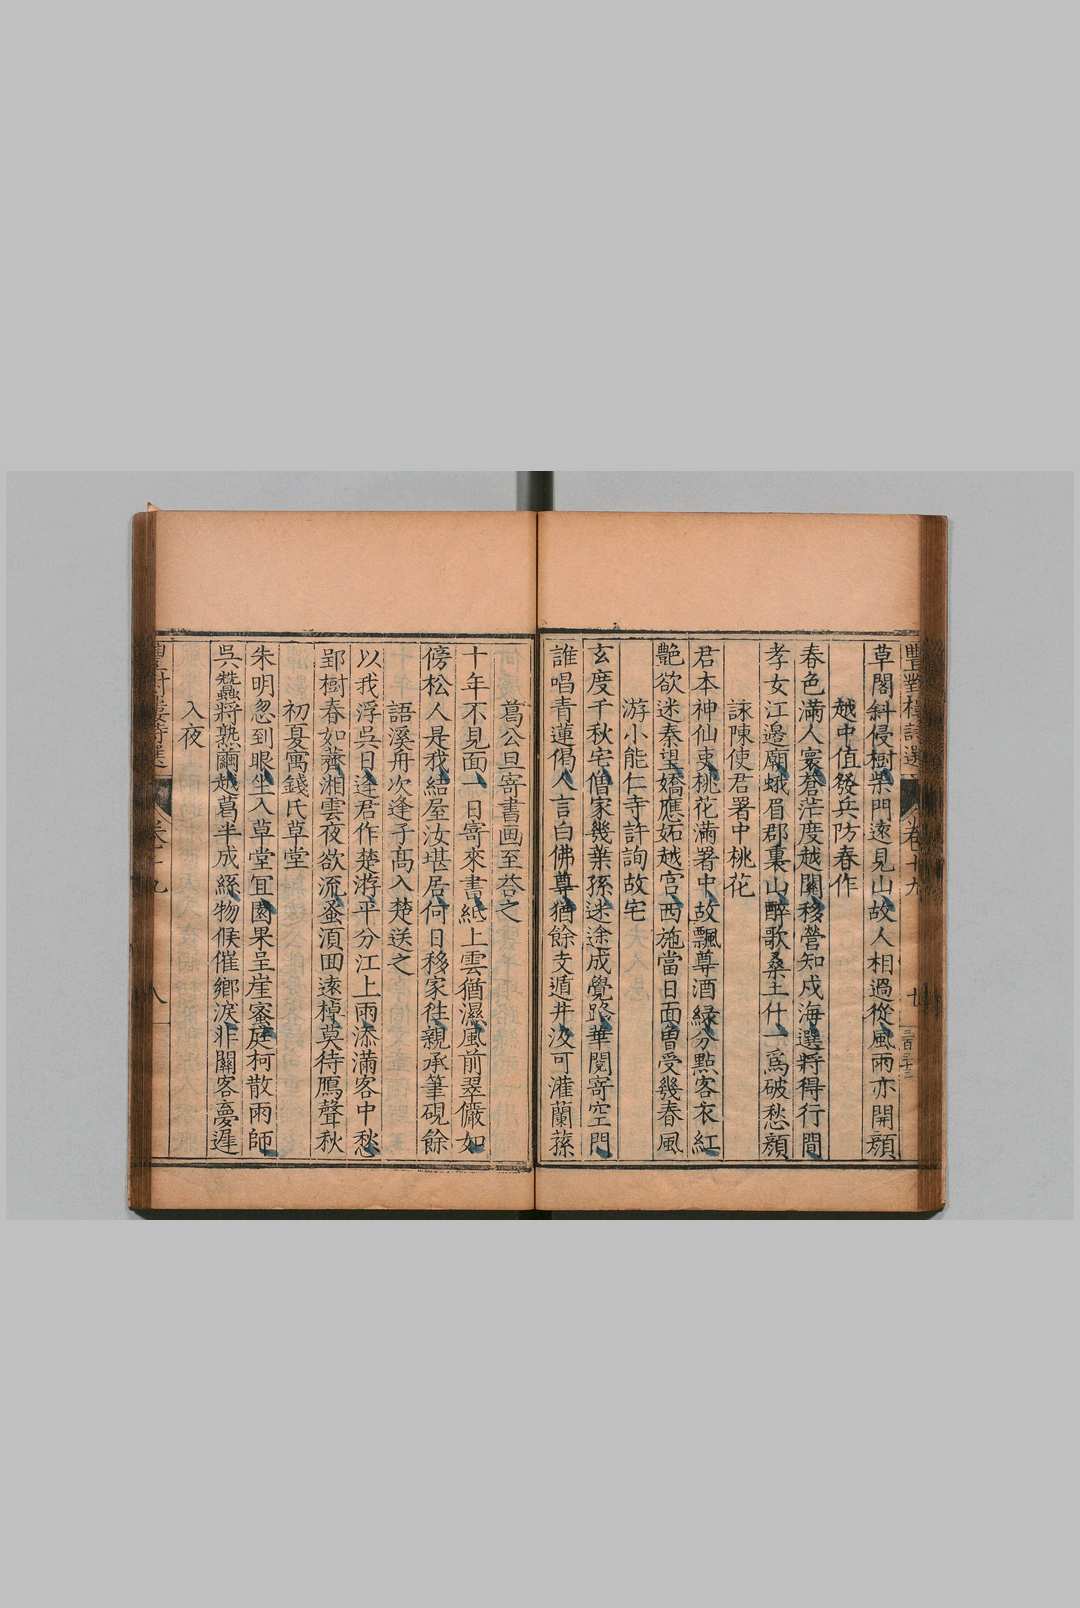 豐對樓詩選 卷十九 廿 三百三十三
草閣斜侵樹柴門遠見山故人相過從風雨亦開顏
越中值發兵防春作
春色滿人寰蒼茫度越關移營知戍海選將得行間
孝女江邊廟蛾眉郡裏山醉歌桑土什一為破愁顏
詠陳使君署中桃花
君本神仙吏桃花滿署中故飄尊酒綠分點客衣紅
艷欲迷秦望嬌應妬越宮西施當日面曾受幾春風
游小能仁寺許詢故宅
玄度千秋宅僧家幾葉孫迷途成覺路華閱寄空門
誰唱青蓮偈人言白佛尊猶餘支遁井汲可灌蘭蓀
葛公旦寄書画至荅之
十年不見面一日寄來書紙上雲猶濕風前翠儼如
傍松人是我結屋汝堪居何日移家徃親承筆硯餘
語溪舟次逢子髙入楚送之
以我浮吳日逢君作楚游平分江上雨添滿客中愁
郢樹春如薺湘雲夜欲流蚤湏回遠棹莫待鴈聲秋
初夏寓錢氏草堂
朱明忽到眼坐入草堂冝園果呈崖蜜庭柯散雨師
吳蠶將熟繭越葛半成絲物候催鄉淚非關客夣遲
入夜
豐對樓詩選 卷十九